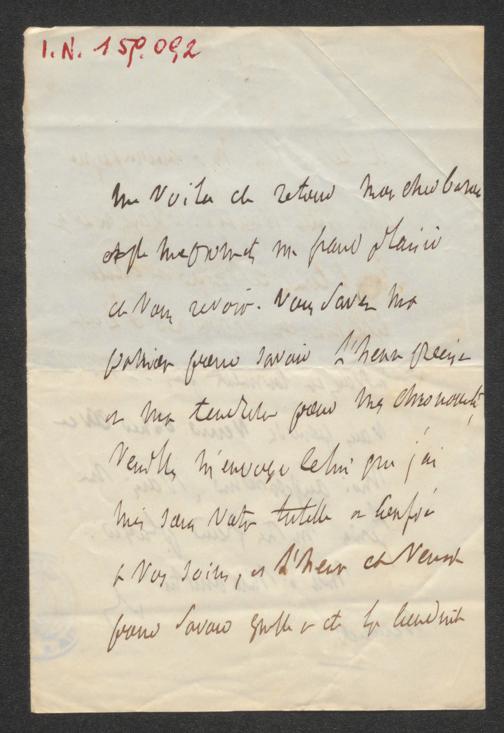 I.N. 159.092
me voila de retour mon cher baron
et je me promets un grand plaisir
de vous revoir. vous savez ma
passion pour savoir l'heure précise
et ma tendresse pour mes chronomètres
Veuillez m'envoyer celui que j'ai
mis sous votre tutelle et confié
à vos soins, et l'heure de Vienne
pour savoir quelle a été la conduite